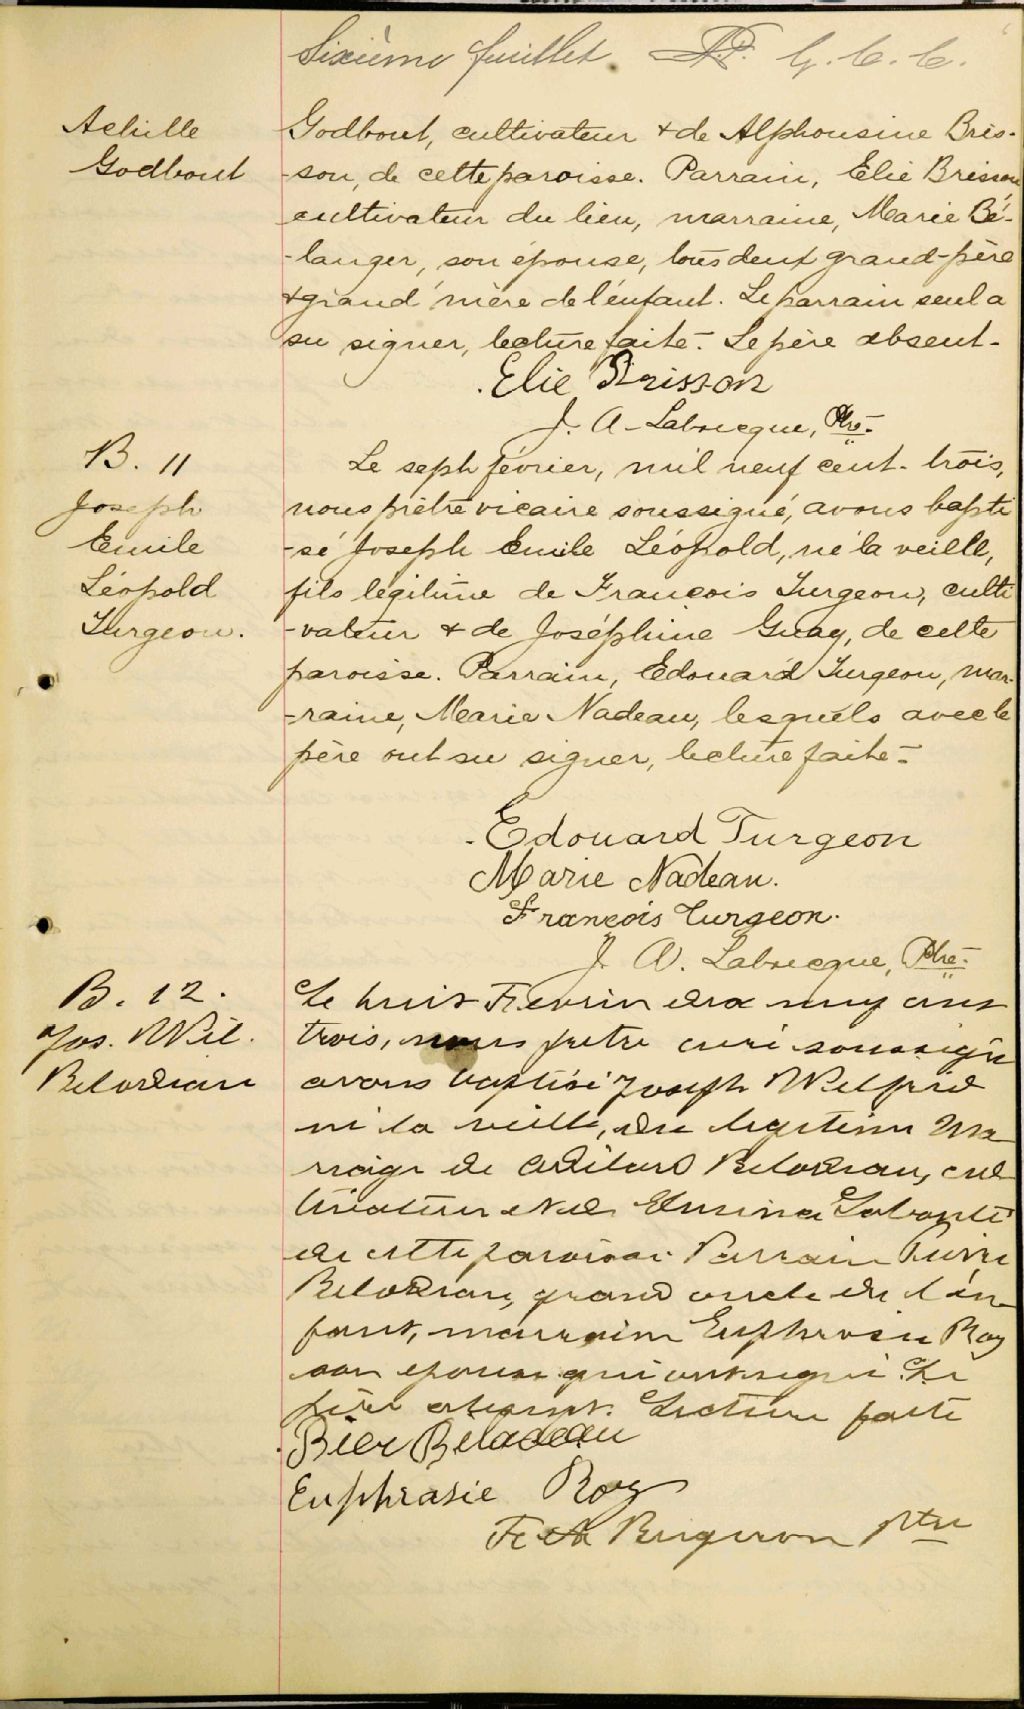 Sixième feuillet. G. C. C.
Achille
Godbout
Godbout, cultivateur & de Alphonsine Bris-
-son, de cette paroisse. Parrain, Elie Brisson,
cultivateur du lieu, marraine, Marie Bé-
-langer, son épouse, tous deux grand-père
& grand'mère de l'enfant. Le parrain seul a
su signer, lecture faite. Le père absent.
Elie Brisson
J. A. Labrecque, Ptre.
B. 11
Joseph
Emile
Léopold
Turgeon.
Le sept février, mil neuf cent-trois,
nous prêtre vicaire soussigné, avons bapti
-sé Joseph Emile Léopold, né la veille,
fils légitime de François Turgeon, culti
-vateur & de Joséphine Guay, de cette
paroisse. Parrain, Edouard Turgeon, mar-
-raine, Marie Nadeau, lesquels avec le
père ont su signer, lecture faite.
Edouard Turgeon
Marie Nadeau.
François Turgeon.
J. A. Labrecque, Ptre.
B. 12.
Jos. Wil.
Belodeau
Le huit Fevrier mil neuf cent
trois, nous pretre curé soussigné
avons baptisé Joseph Wilfrid
né la veille, du legitime Ma
riage de Belodeau, cul
tivateur et de Elmina Labonté
de cette paroisse. Parrain Pierre
Belodeau, grand oncle de l'en
fant, marraine Euphrosie Roy
son epouse qui ont signé. Le
père absent. Lecture faite
Bier Beladeau
Euphrasie Roy
Bergeron Ptre